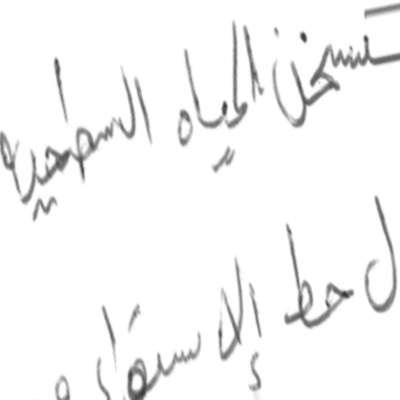 تسخن المياه السطحية
ل خط الإستوا